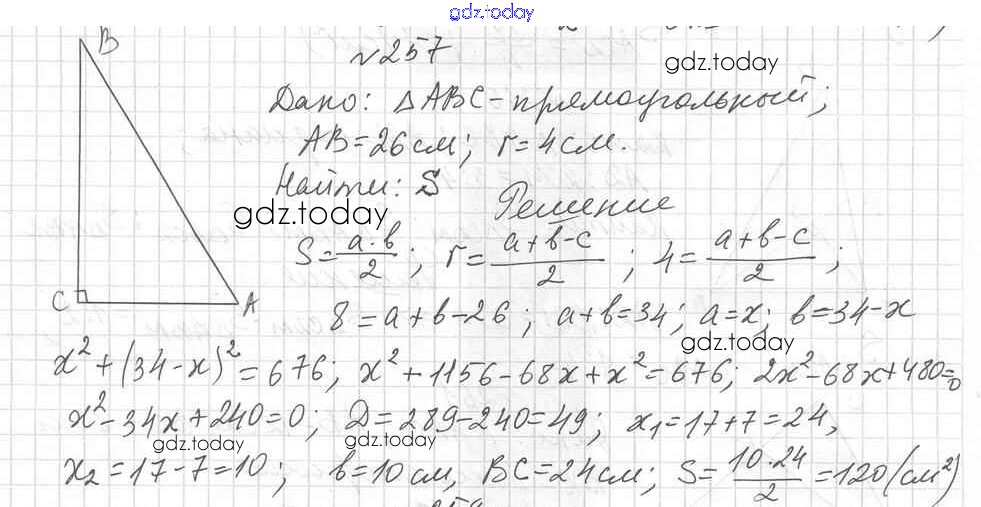 gdz.today
B
№257
gdz.today
Дано: △ABC - прямоугольный;
AB = 26 см; r = 4 см.
Найти: S
gdz.today
Решение
S = a·b/2; r = (a+b-c)/2; 4 = (a+b-c)/2;
C A
8 = a+b-26; a+b=34; a=x; b=34-x
gdz.today
x² + (34-x)² = 676; x² + 1156 - 68x + x² = 676; 2x² - 68x + 480 = 0
x² - 34x + 240 = 0; D = 289 - 240 = 49; x₁ = 17+7 = 24,
gdz.today gdz.today
x₂ = 17-7 = 10; b = 10 см, BC = 24 см; S = 10·24/2 = 120 (см²)